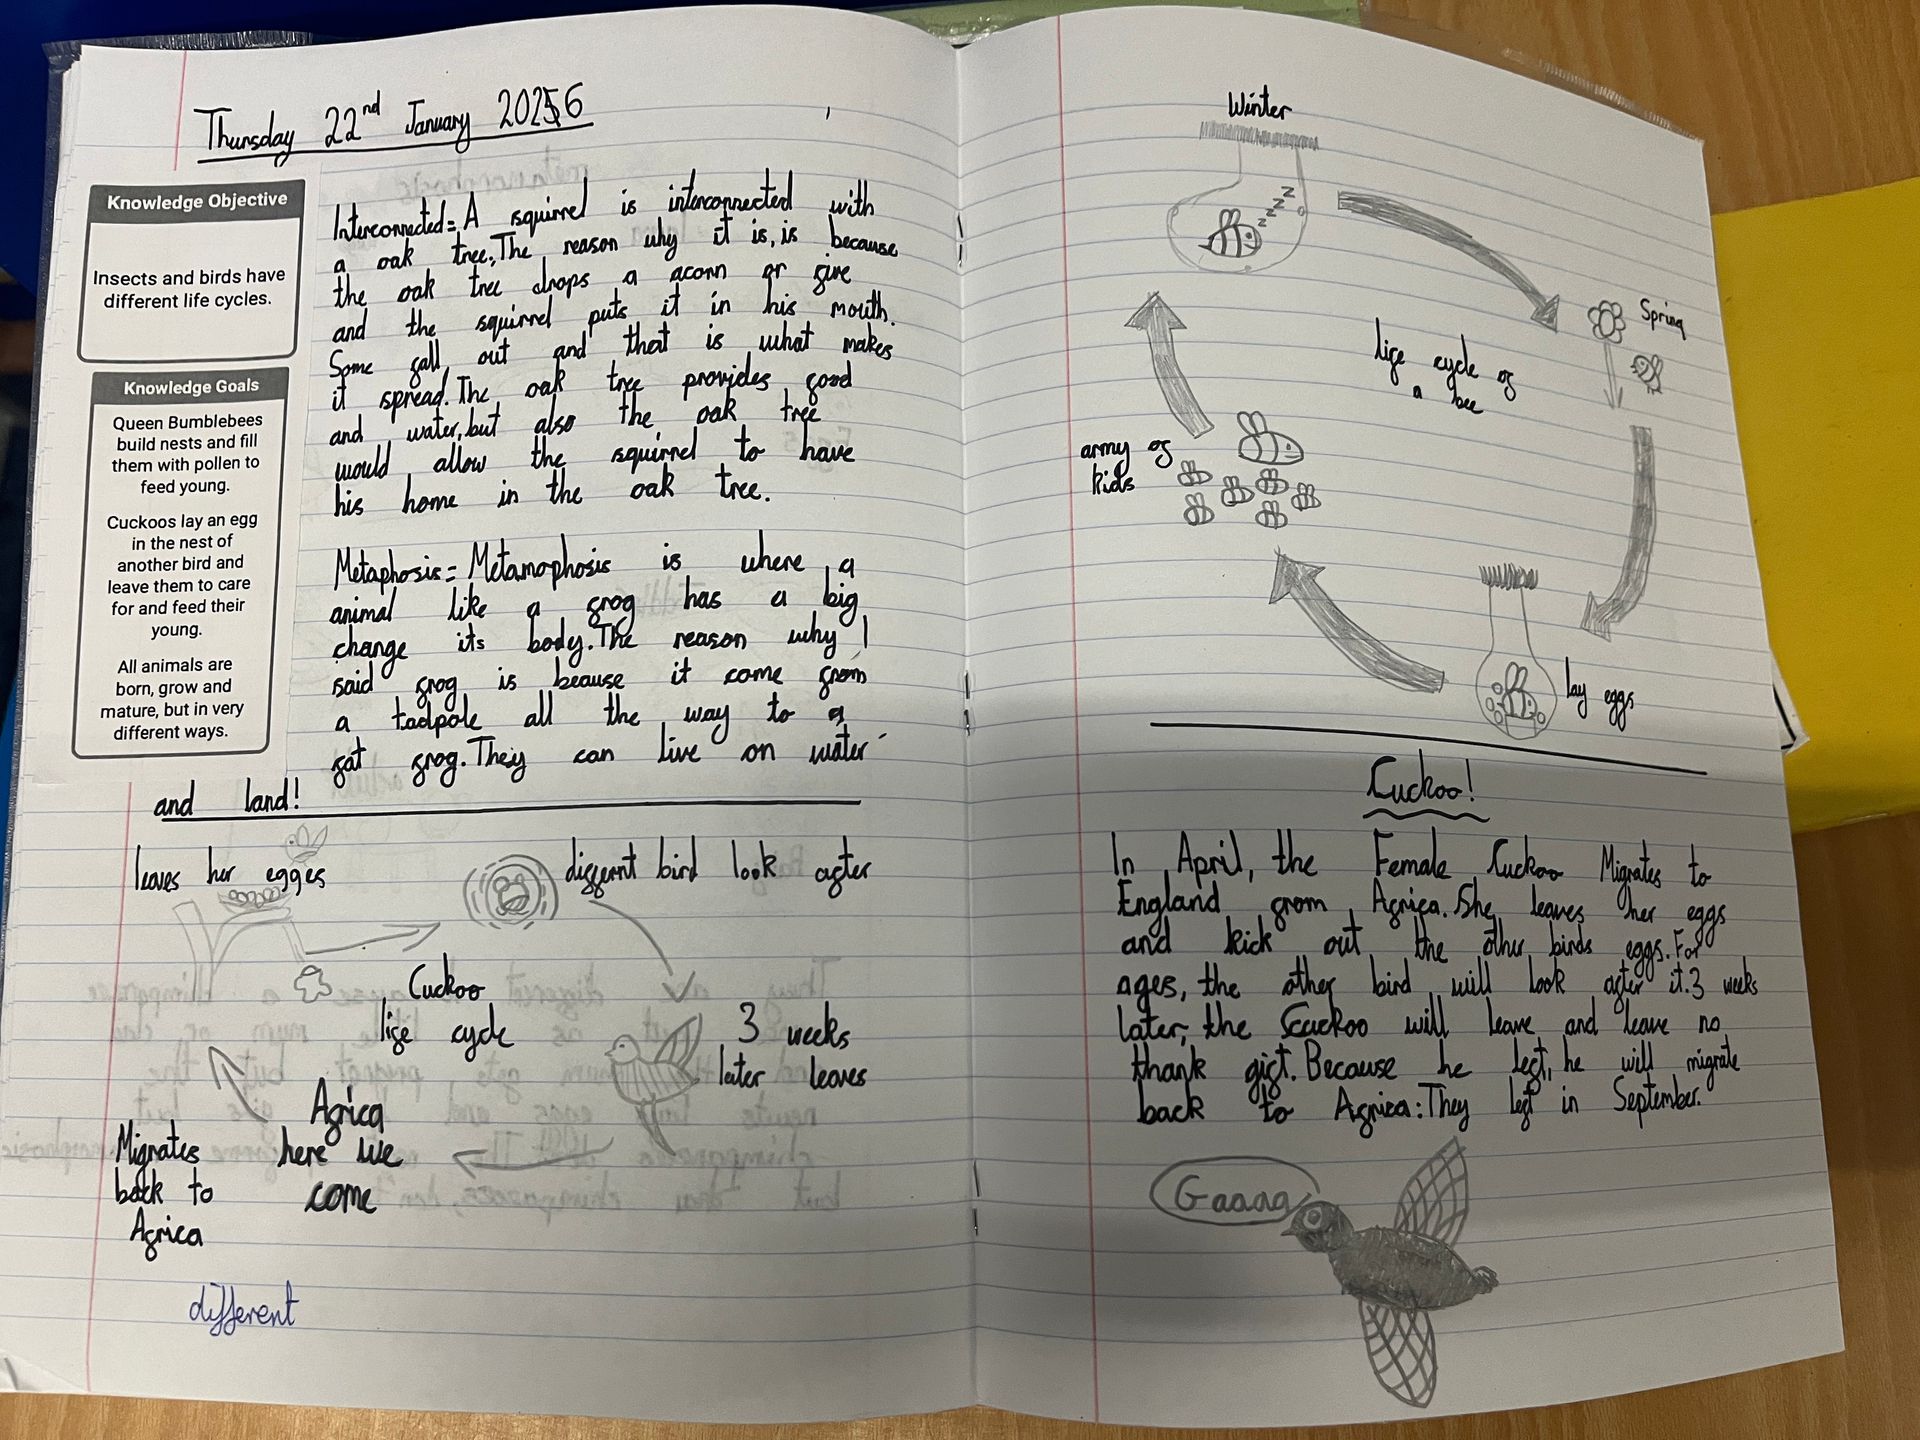 Thursday 22nd January 2026
Knowledge Objective
Insects and birds have
different life cycles.
Knowledge Goals
Queen Bumblebees
build nests and fill
them with pollen to
feed young.
Cuckoos lay an egg
in the nest of
another bird and
leave them to care
for and feed their
young.
All animals are
born, grow and
mature, but in very
different ways.
Interconnected= A squirrel is interconnected with
a oak tree. The reason why it is, is because
the oak tree drops a acorn or five
and the squirrel puts it in his mouth.
Some fall out and that is what makes
it spread. The oak tree provides food
and water, but also the oak tree
would allow the squirrel to have
his home in the oak tree.
Metaphosis= Metamophosis is where a
animal like a frog has a big
change its body. The reason why I
said frog is beause it come from
a tadpole all the way to a
fat frog. They can live on water
and land!
leaves her egges
differnt bird look after
Cuckoo
life cycle
3 weeks
later leaves
Africa
here we
come
Migrates
back to
Africa
different
Winter
zzzzz
Spring
life cycle of
a bee
army of
kids
lay eggs
Cuckoo!
In April, the Female Cuckoo Migrates to
England from Africa. She leaves her eggs
and kick out the other birds eggs. For
ages, the other bird will look after it. 3 weeks
later, the Cuckoo will leave and leave no
thank gift. Because he left, he will migrate
back to Africa. They left in September.
Gaaaa